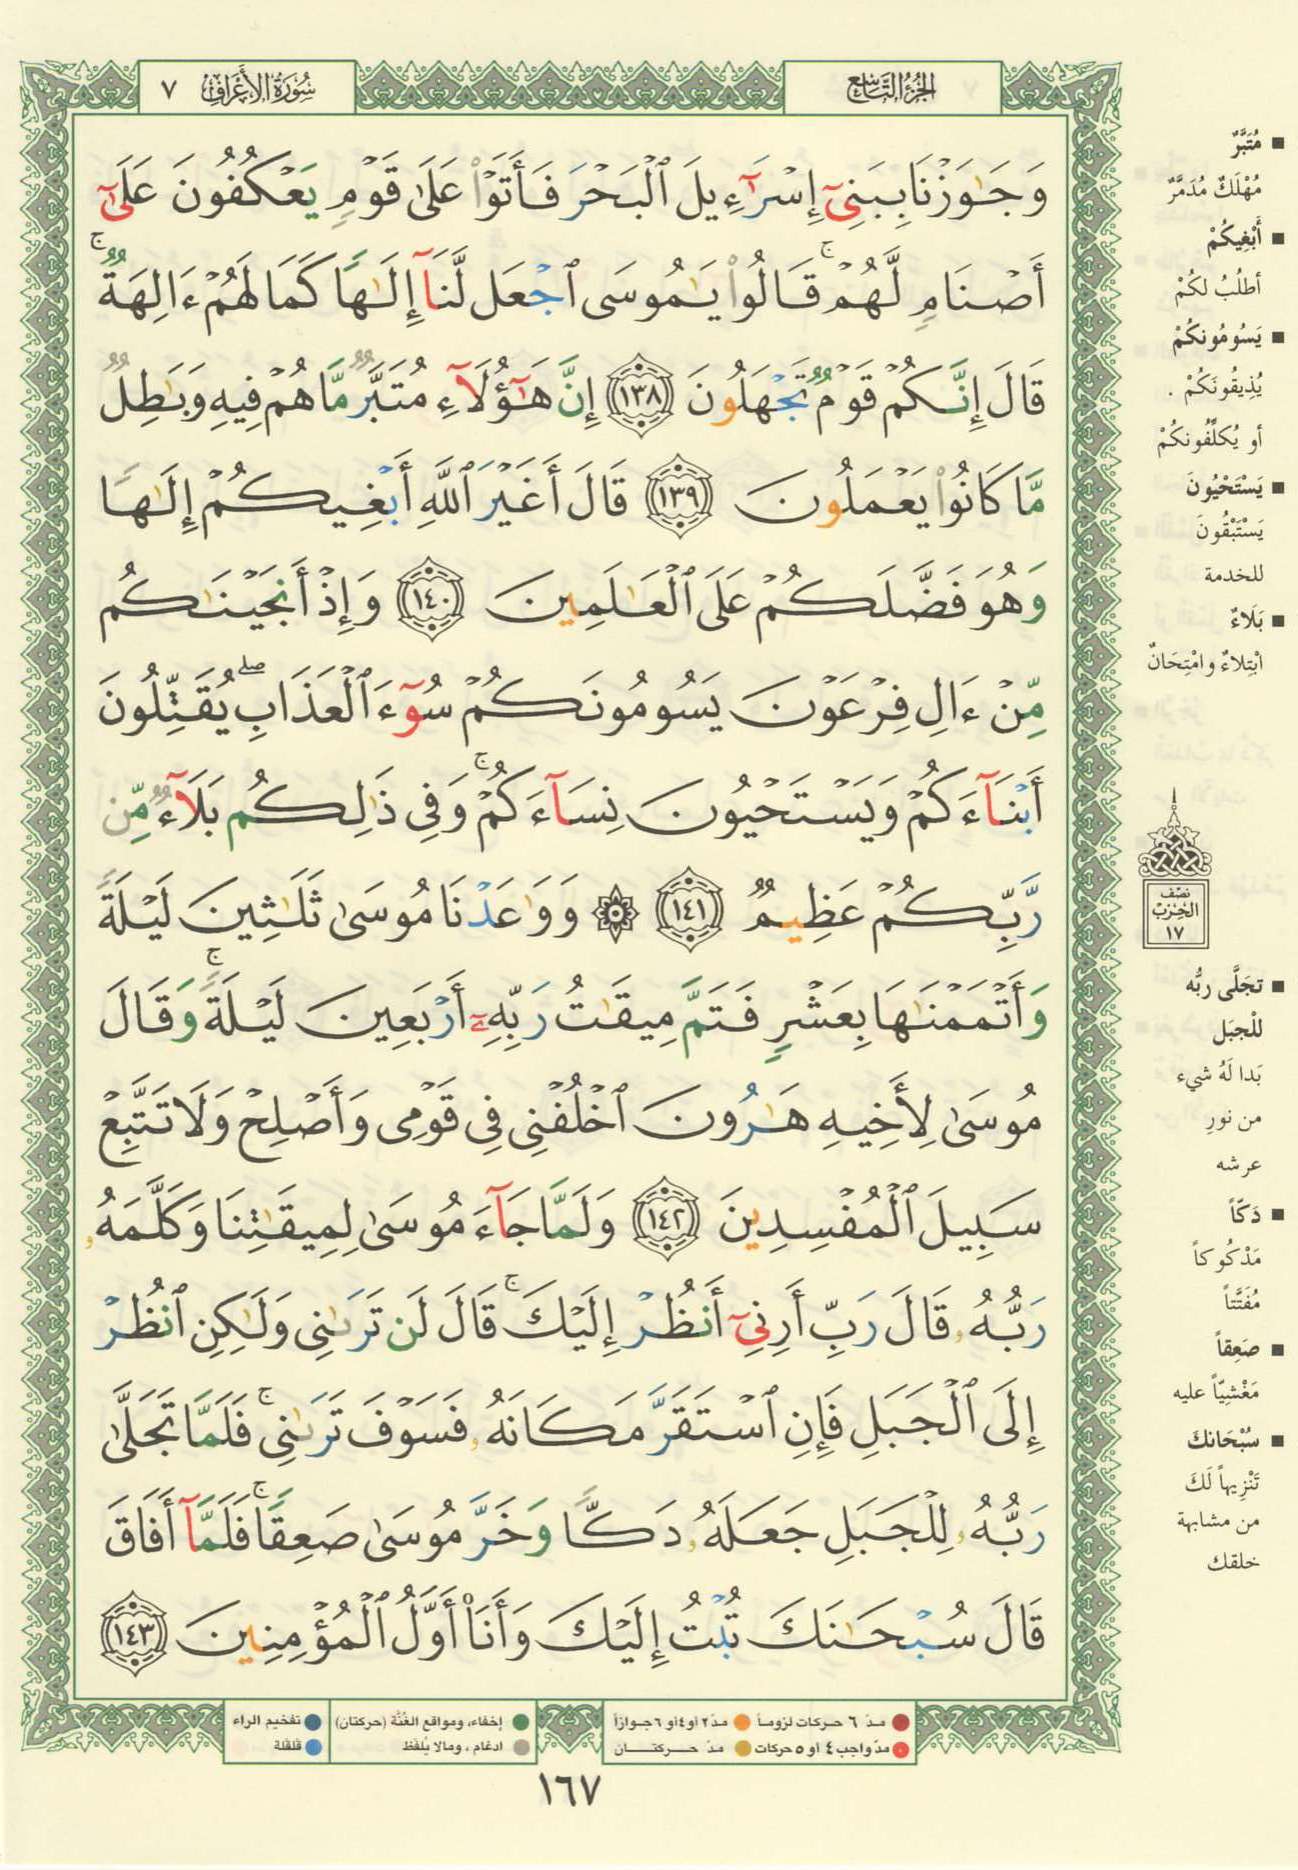 سُورَةُ الأَعْرَاف ٧
الجُزْءُ التَّاسِعُ
وَجَٰوَزْنَا بِبَنِىٓ إِسْرَٰٓءِيلَ ٱلْبَحْرَ فَأَتَوْا۟ عَلَىٰ قَوْمٍ يَعْكُفُونَ عَلَىٰٓ
أَصْنَامٍ لَّهُمْ ۚ قَالُوا۟ يَٰمُوسَى ٱجْعَل لَّنَآ إِلَٰهًا كَمَا لَهُمْ ءَالِهَةٌ ۚ
قَالَ إِنَّكُمْ قَوْمٌ تَجْهَلُونَ ﴿١٣٨﴾ إِنَّ هَٰٓؤُلَآءِ مُتَبَّرٌ مَّا هُمْ فِيهِ وَبَٰطِلٌ
مَّا كَانُوا۟ يَعْمَلُونَ ﴿١٣٩﴾ قَالَ أَغَيْرَ ٱللَّهِ أَبْغِيكُمْ إِلَٰهًا
وَهُوَ فَضَّلَكُمْ عَلَى ٱلْعَٰلَمِينَ ﴿١٤٠﴾ وَإِذْ أَنجَيْنَٰكُم
مِّنْ ءَالِ فِرْعَوْنَ يَسُومُونَكُمْ سُوٓءَ ٱلْعَذَابِ ۖ يُقَتِّلُونَ
أَبْنَآءَكُمْ وَيَسْتَحْيُونَ نِسَآءَكُمْ ۚ وَفِى ذَٰلِكُم بَلَآءٌ مِّن
رَّبِّكُمْ عَظِيمٌ ﴿١٤١﴾ ۞ وَوَٰعَدْنَا مُوسَىٰ ثَلَٰثِينَ لَيْلَةً
وَأَتْمَمْنَٰهَا بِعَشْرٍ فَتَمَّ مِيقَٰتُ رَبِّهِۦٓ أَرْبَعِينَ لَيْلَةً ۚ وَقَالَ
مُوسَىٰ لِأَخِيهِ هَٰرُونَ ٱخْلُفْنِى فِى قَوْمِى وَأَصْلِحْ وَلَا تَتَّبِعْ
سَبِيلَ ٱلْمُفْسِدِينَ ﴿١٤٢﴾ وَلَمَّا جَآءَ مُوسَىٰ لِمِيقَٰتِنَا وَكَلَّمَهُۥ
رَبُّهُۥ قَالَ رَبِّ أَرِنِىٓ أَنظُرْ إِلَيْكَ ۚ قَالَ لَن تَرَىٰنِى وَلَٰكِنِ ٱنظُرْ
إِلَى ٱلْجَبَلِ فَإِنِ ٱسْتَقَرَّ مَكَانَهُۥ فَسَوْفَ تَرَىٰنِى ۚ فَلَمَّا تَجَلَّىٰ
رَبُّهُۥ لِلْجَبَلِ جَعَلَهُۥ دَكًّا وَخَرَّ مُوسَىٰ صَعِقًا ۚ فَلَمَّآ أَفَاقَ
قَالَ سُبْحَٰنَكَ تُبْتُ إِلَيْكَ وَأَنَا۠ أَوَّلُ ٱلْمُؤْمِنِينَ ﴿١٤٣﴾
■ مُتَبَّرٌ
مُهْلَكٌ مُدَمَّرٌ
■ أَبْغِيكُمْ
أطلُبُ لكُمْ
■ يَسُومُونكُمْ
يُذِيقُونَكُمْ .
أو يُكلِّفُونكُمْ
■ يَسْتَحْيُونَ
يَسْتَبْقُونَ
للخدمة
■ بَلَاءٌ
ابْتِلاءٌ وامْتِحَانٌ
نصف
الحزب
١٧
■ تجَلَّى ربُّه
للْجبَل
بَدا لَهُ شيء
من نورِ
عرشه
■ دَكّاً
مَدْكُوكاً
مُفَتَّتاً
■ صَعِقاً
مَغْشِيّاً عليه
■ سُبْحَانكَ
تَنْزِيهاً لَكَ
من مشابهة
خلقك
مدّ ٦ حركات لزوماً
مدّ ٢ أو ٤ أو ٦ جوازاً
إخفاء، ومواقع الغُنَّة (حركتان)
تفخيم الراء
مدّ واجب ٤ أو ٥ حركات
مدّ حركتان
ادغام، ومالا يُلفظ
قلقلة
١٦٧